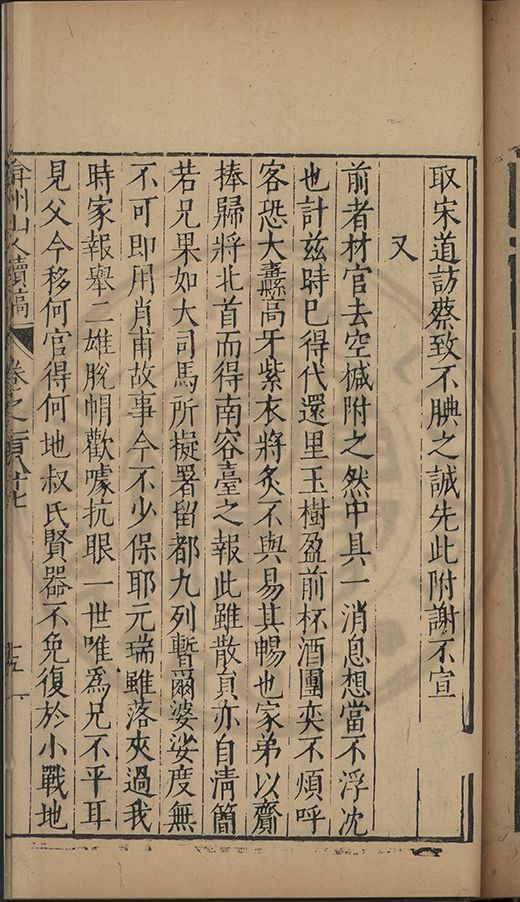 取宋道訪蔡致不腆之誠先此附謝不宣
又
前者材官去空椷附之然中具一消息想當不浮沈
也計茲時巳得代還里玉樹盈前杯酒團奕不煩呼
客恐大纛高牙紫衣將炙不與易其暢也家弟以齎
捧歸將北首而得南容臺之報此雖散員亦自淸簡
若兄果如大司馬所擬署留都九列暫爾婆娑度無
不可即用肖甫故事今不少保耶元瑞雖落夾過我
時家報舉二雄脫帽歡噱抗眼一世唯爲兄不平耳
見父今移何官得何地叔氏賢器不免復於小戰地
弇州山人續稿 卷之一百八十七